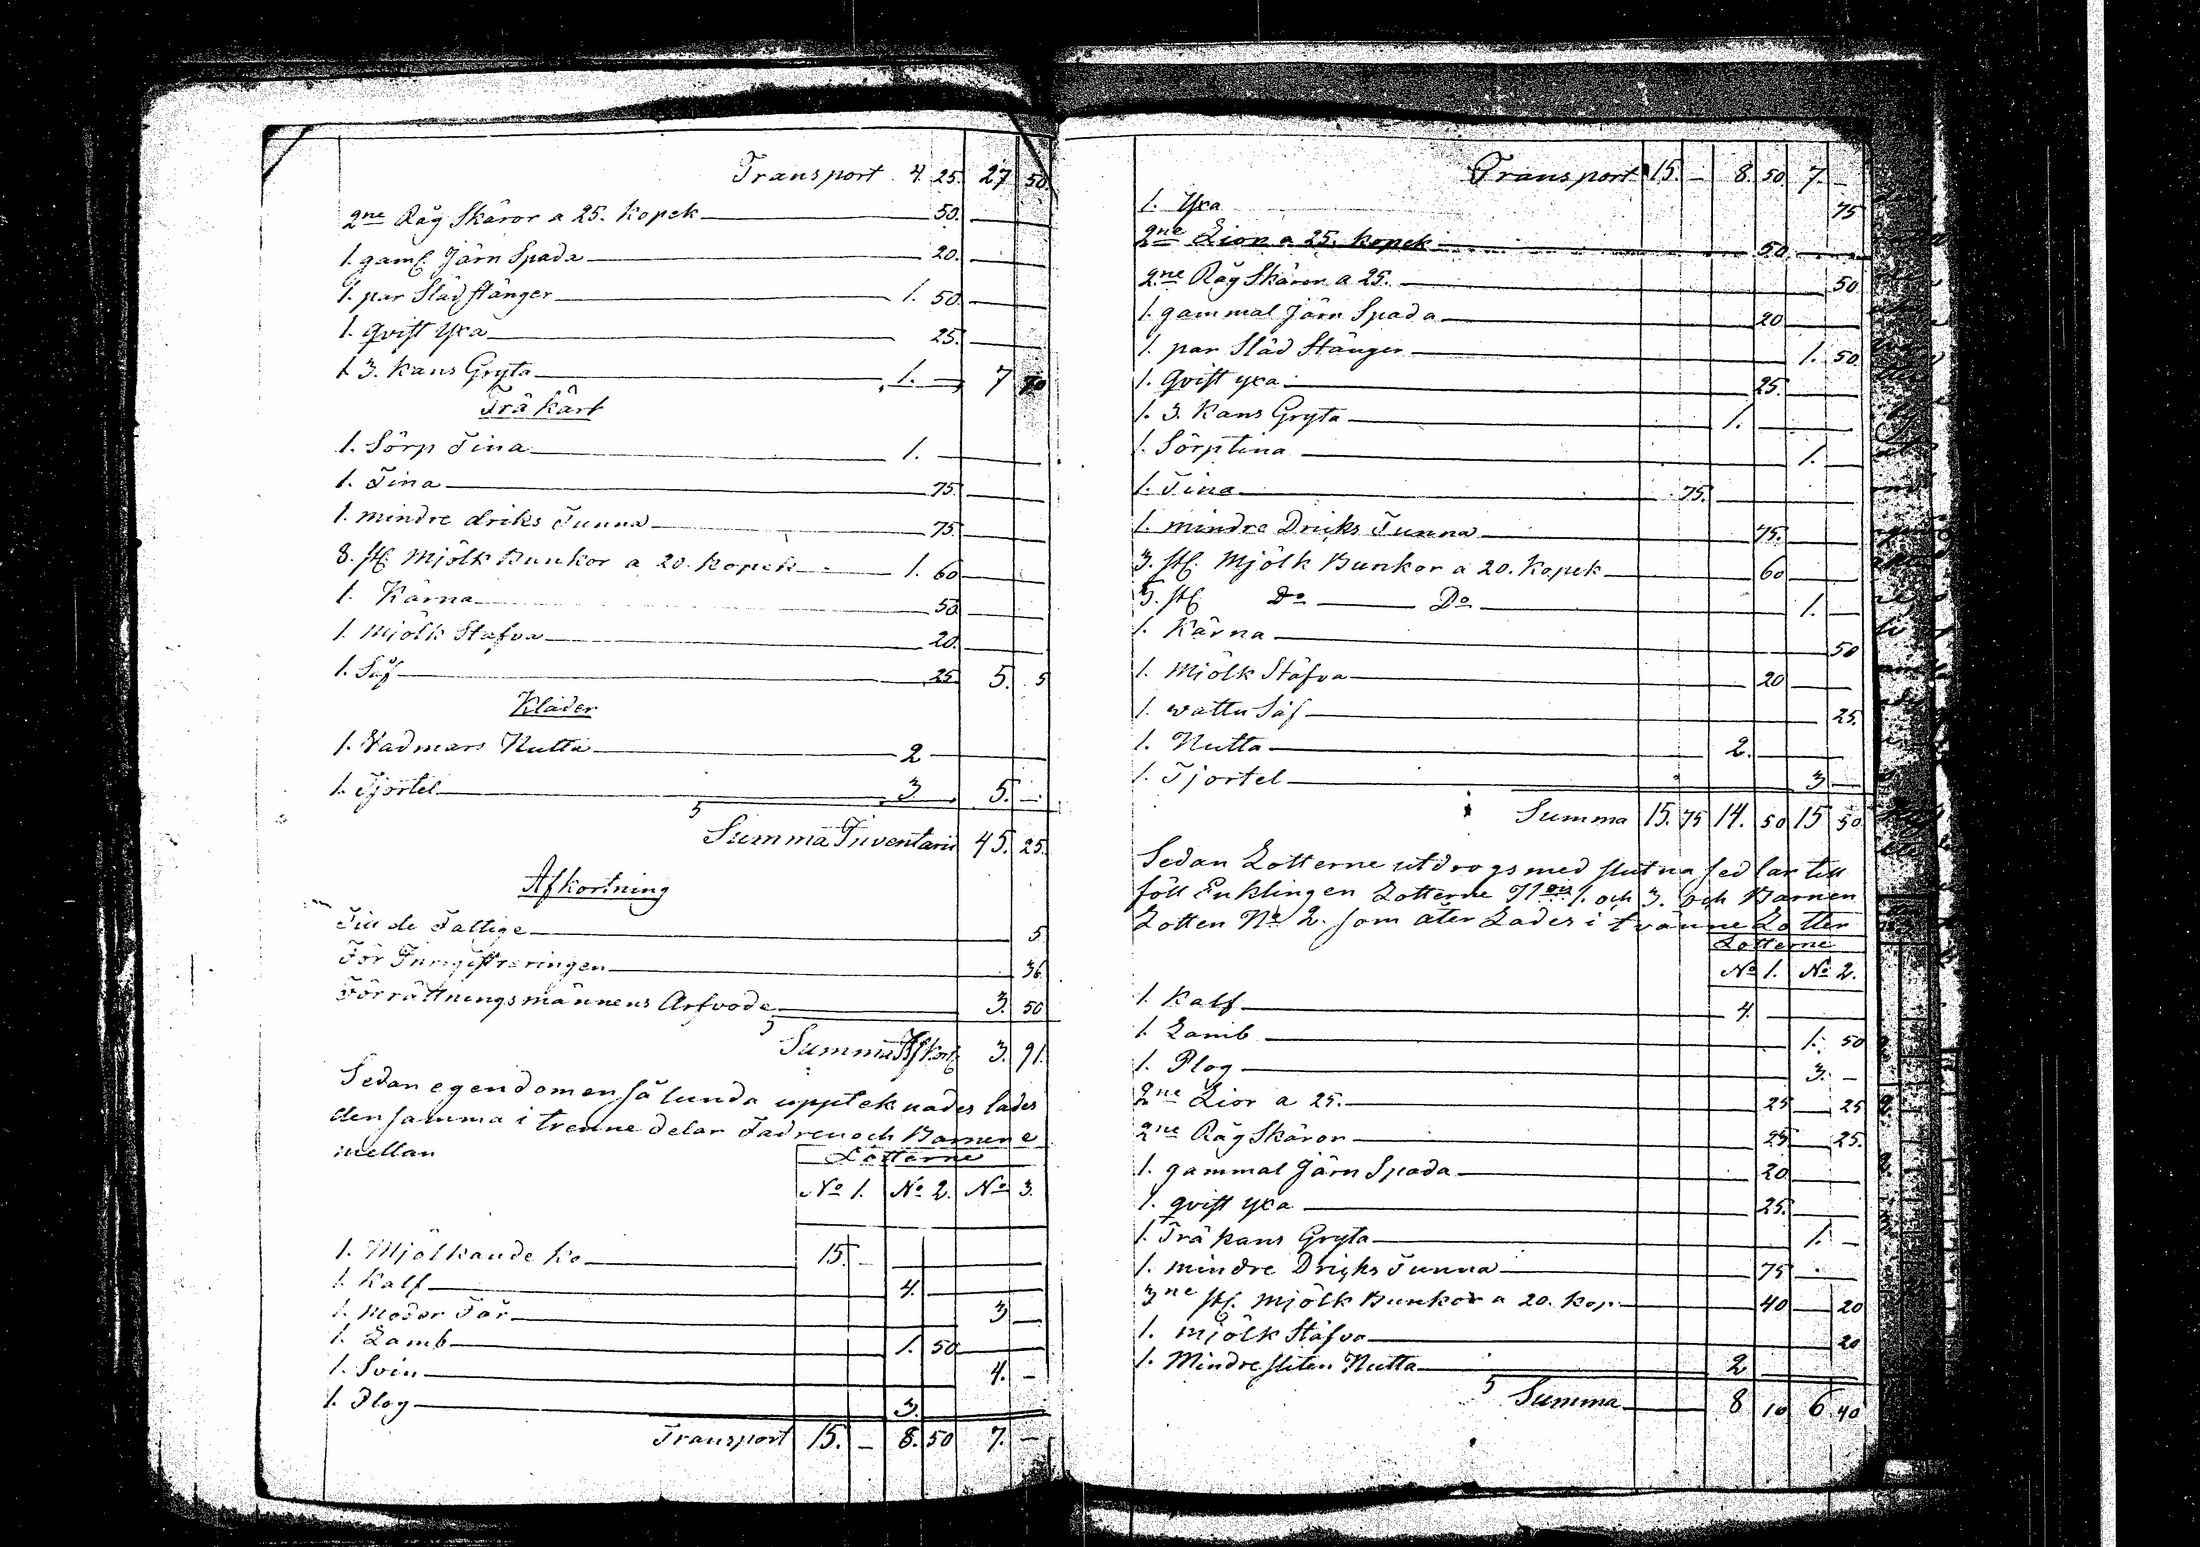 Transport 4. 25. 27 50
2ne Råg Skäror a 25. kopek 50.
1. gaml Järn Spada 20.
1. par Slädstänger 1. 50
1. qvist yxa 25.
1. 3. kans Gryta 1. — 7 70
Trä kärl
1. Sörp Tina 1. —
1. Tina 75.
1. mindre driks Tunna 75.
8. st. Mjölk Bunkor a 20. kopek 1. 60
1. Kärna 50
1. Mjölk Stäfva 20.
1. Såf 25 5. 5
Kläder
1. Vadmars Kutta 2
1. Tjortel 3 5. —
Summa Inventarii 45. 25.
Afkortning
Till de Fattige 5
För Inregistreringen 36
Förrättningsmännens Arfvode 3. 50
Summa Afkort 3. 91.
Sedan egendomen så lunda upptecknades lades
den samma i trenne delar Fadren och Barnen e
mellan
Lotterne
No 1. No 2. No 3.
1. Mjölkande ko 15. —
1. Kalf 4.
1. Moder Får 3 —
1. Lamb 1. 50
1. Svin 4. —
1. Plog 3.
Transport 15. — 8. 50 7. —
Transport 15. — 8. 50. 7. —
1. Yxa 75
2ne Lior a 25. kopek 50
2ne Råg Skäror a 25. 50
1. gammal Järn Spada 20
1. par Släd Stänger 1. 50
1. Qvist yxa 25.
1. 3. Kans Gryta 1.
1. Sörptina 1. —
1. Tina 75.
1. mindre Dricks Tunna 75.
3. st. Mjölk Bunkor a 20. Kopek 60
5. st Do Do 1. —
1. Kärna 50
1. Mjölk Stäfva 20
1. wattu Såf 25.
1. Kutta 2.
1. Tjortel 3 —
Summa 15. 75 14. 50 15 50
Sedan Lotterne utdrogs med slutna sedlar till
föll Enklingen Lotterne Nris 1. och 3. och Barnen
Lotten No 2. som åter Lades i tvänne Lotter
Lotterne
No 1. No 2.
1. Kalf 4.
1. Lamb 1. 50
1. Plog 3. —
2ne Lior a 25. 25 25
2ne Råg Skäror 25 25.
1. gammal Järn Spada 20
1. qvist yxa 25.
1. Trä kans Gryta 1. —
1. mindre Dricks Tunna 75
3ne st. Mjölk Bunkor a 20. Kop. 40 20
1. mjölk Stäfva 20
1. Mindre sliten Kutta 2
Summa 8 10 6 40